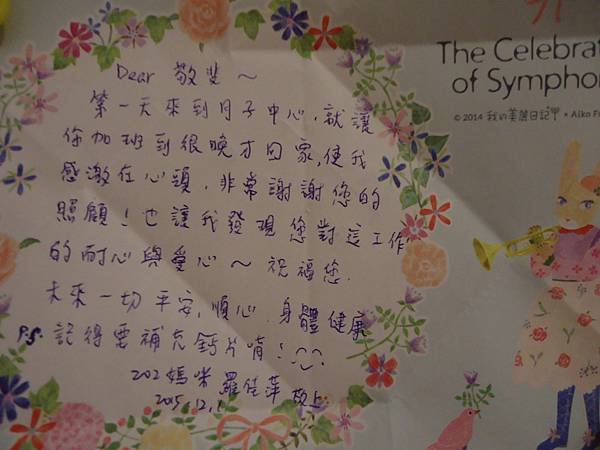 Dear 敬斐～
第一天來到月子中心,就讓
你加班到很晚才回家,使我
感激在心頭,非常謝謝您的
照顧!也讓我發現您對這工作
的耐心與愛心～祝福您.
未來一切平安,順心.身體健康
P.S.記得要補充鈣片唷!
202媽咪 羅佳萍 敬上.
2015.12.1
The Celebrat
of Sympho
© 2014 我的美麗日記 × Aiko Fu